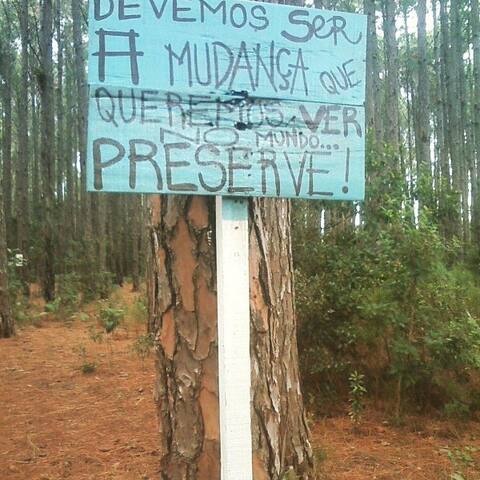 DEVEMOS SER
A MUDANÇA QUE
QUEREMOS VER
NO MUNDO...
PRESERVE!